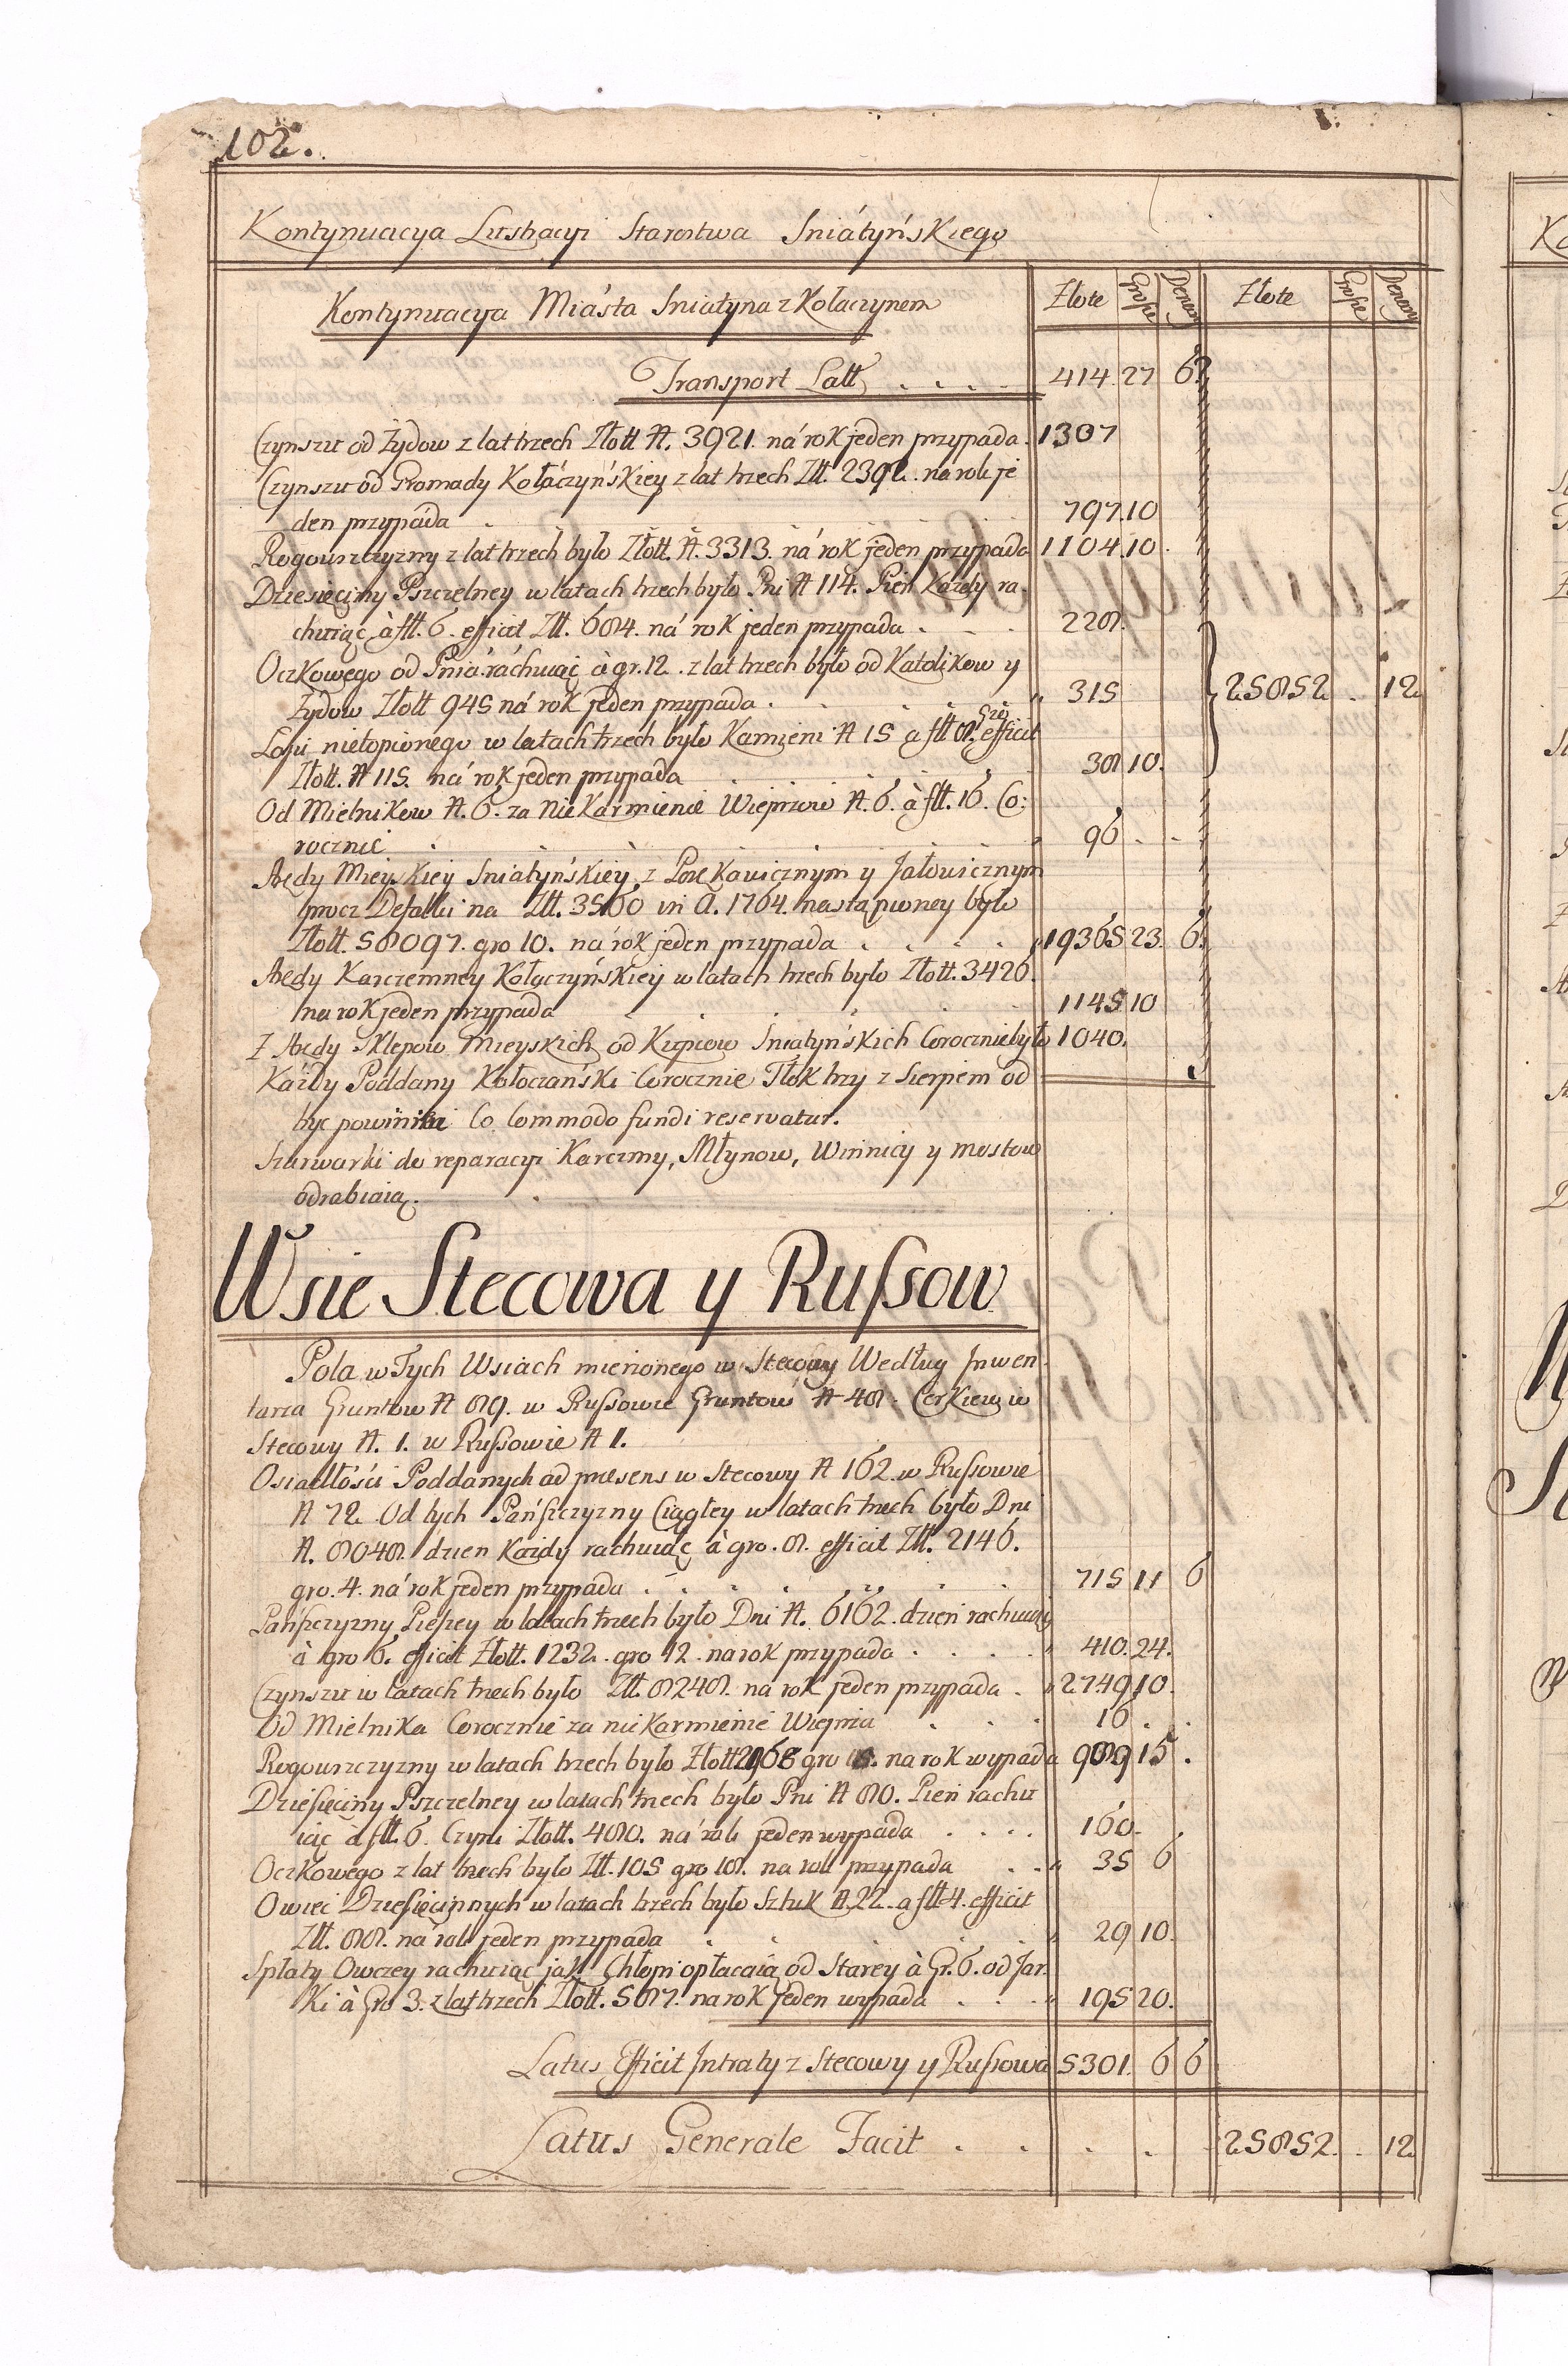 102.
Kontynuacya Lustracyi Starostwa Sniatyńskiego
Kontynuacya Miasta Sniatyna z Kołaczynem Złote Grosze Denary Złote Grosze Denary
Transport Latt . . . . 414. 27 6
Czynszu od Żydow z lat trzech Złott N. 3921. na rok jeden przypada. 1307
Czynszu od Gromady Kołaczyńskiey z lat trzech Złt. 2392. na rok je
den przypada 797. 10
Rogowszczyzny z lat trzech było Złott. N. 3313. na rok jeden przypada 1104. 10.
Dziesięciny Pszczelney w latach trzech było Pni N 114. Pień Każdy ra-
chuiąc à fłt. 6. efficit Złt. 684. na rok jeden przypada . . . 228.
Oczkowego od Pnia rachuiąc à gr. 12. z lat trzech było od Katolikow y
Żydow Złott 945 na rok jeden przypada . . . „ 315 25852 . 12
Łoju nietopionego w latach trzech było Kamieni N 15 a fłt 8. efficit
Złott. N 115. na rok jeden przypada 38 10.
Od Mielnikow N. 6. za nie Karmienie Wieprzow N. 6. à fłt. 16. Co:
rocznie 96 . .
Aręndy Mieyskiey Sniatyńskiey z Jałowicznym
procz Defalki na Złt. 3560 in A. 1764. nastąpioney było
Złott. 58097. gro 10. na rok jeden przypada . . . . „ 19365 23. 6.
Aręndy Karczemney Kołaczyńskiey w latach trzech było Złott. 3426.
na rok jeden przypada 1145 10
Z Aręndy Sklepow Mieyskich od Kupcow Sniatyńskich Corocznie było 1040.
Każdy Poddany Kołoczański Corocznie Tłok trzy z Sierpem od
być powinien Co Commodo fundi reservatur.
Szarwarki do reparacyi Karczmy, Młynow, Winnicy y mostow
odrabiaią.
Wsie Stecowa y Russow
Pola w Tych Wsiach mierzonego w Stecowy Według Inwen
tarza Gruntow N 89. w Russowie Gruntow N 48. Cerkiew w
Stecowy N. 1. w Russowie N 1.
Osiadłości Poddanych ad praesens w Stecowy N 162 w Russowie
N 72. Od tych Pańszczyzny Ciągłey w latach trzech było Dni
N. 8048. dzien Każdy rachuiąc à gro. 8. efficit Złt. 2146.
gro. 4. na rok jeden przypada . . . . . 715 11 6
Pańszczyzny Pieszey w latach trzech było Dni N. 6162. dzień rachuiąc
à gro 6. efficit Złott. 1232. gro 12. na rok przypada . . . . „ 410. 24.
Czynszu w latach trzech było Złt. 8248. na rok jeden przypada . „ 2749 10.
Od Mielnika Corocznie za nie Karmienie Wieprza . . . 16 . .
Rogowszczyzny w latach trzech było Złott gro . na rok wypada 989 15 .
Dziesięciny Pszczelney w latach trzech było Pni N 80. Pień rachu
iąc à fłt. 6. Czyni Złott. 480. na rok jeden wypada . . . . 160. .
Oczkowego z lat trzech było Złt. 105 gro 18. na rok przypada . . „ 35 6
Owiec Dziesięcinnych w latach trzech było Sztuk N. 22. a fłt 4. efficit
Złt. 88. na rok jeden przypada . . . „ 29 10.
Spłaty Owczey rachuiąc jak Chłopi opłacaią od Starey à Gr. 6. od Jar
Ki à Gro 3. z lat trzech Złott. 587. na rok jeden wypada . . . „ 195 20.
Latus Efficit Intraty z Stecowy y Russowa 5301. 6 6
Latus Generale Facit . . . . 25852. . 12